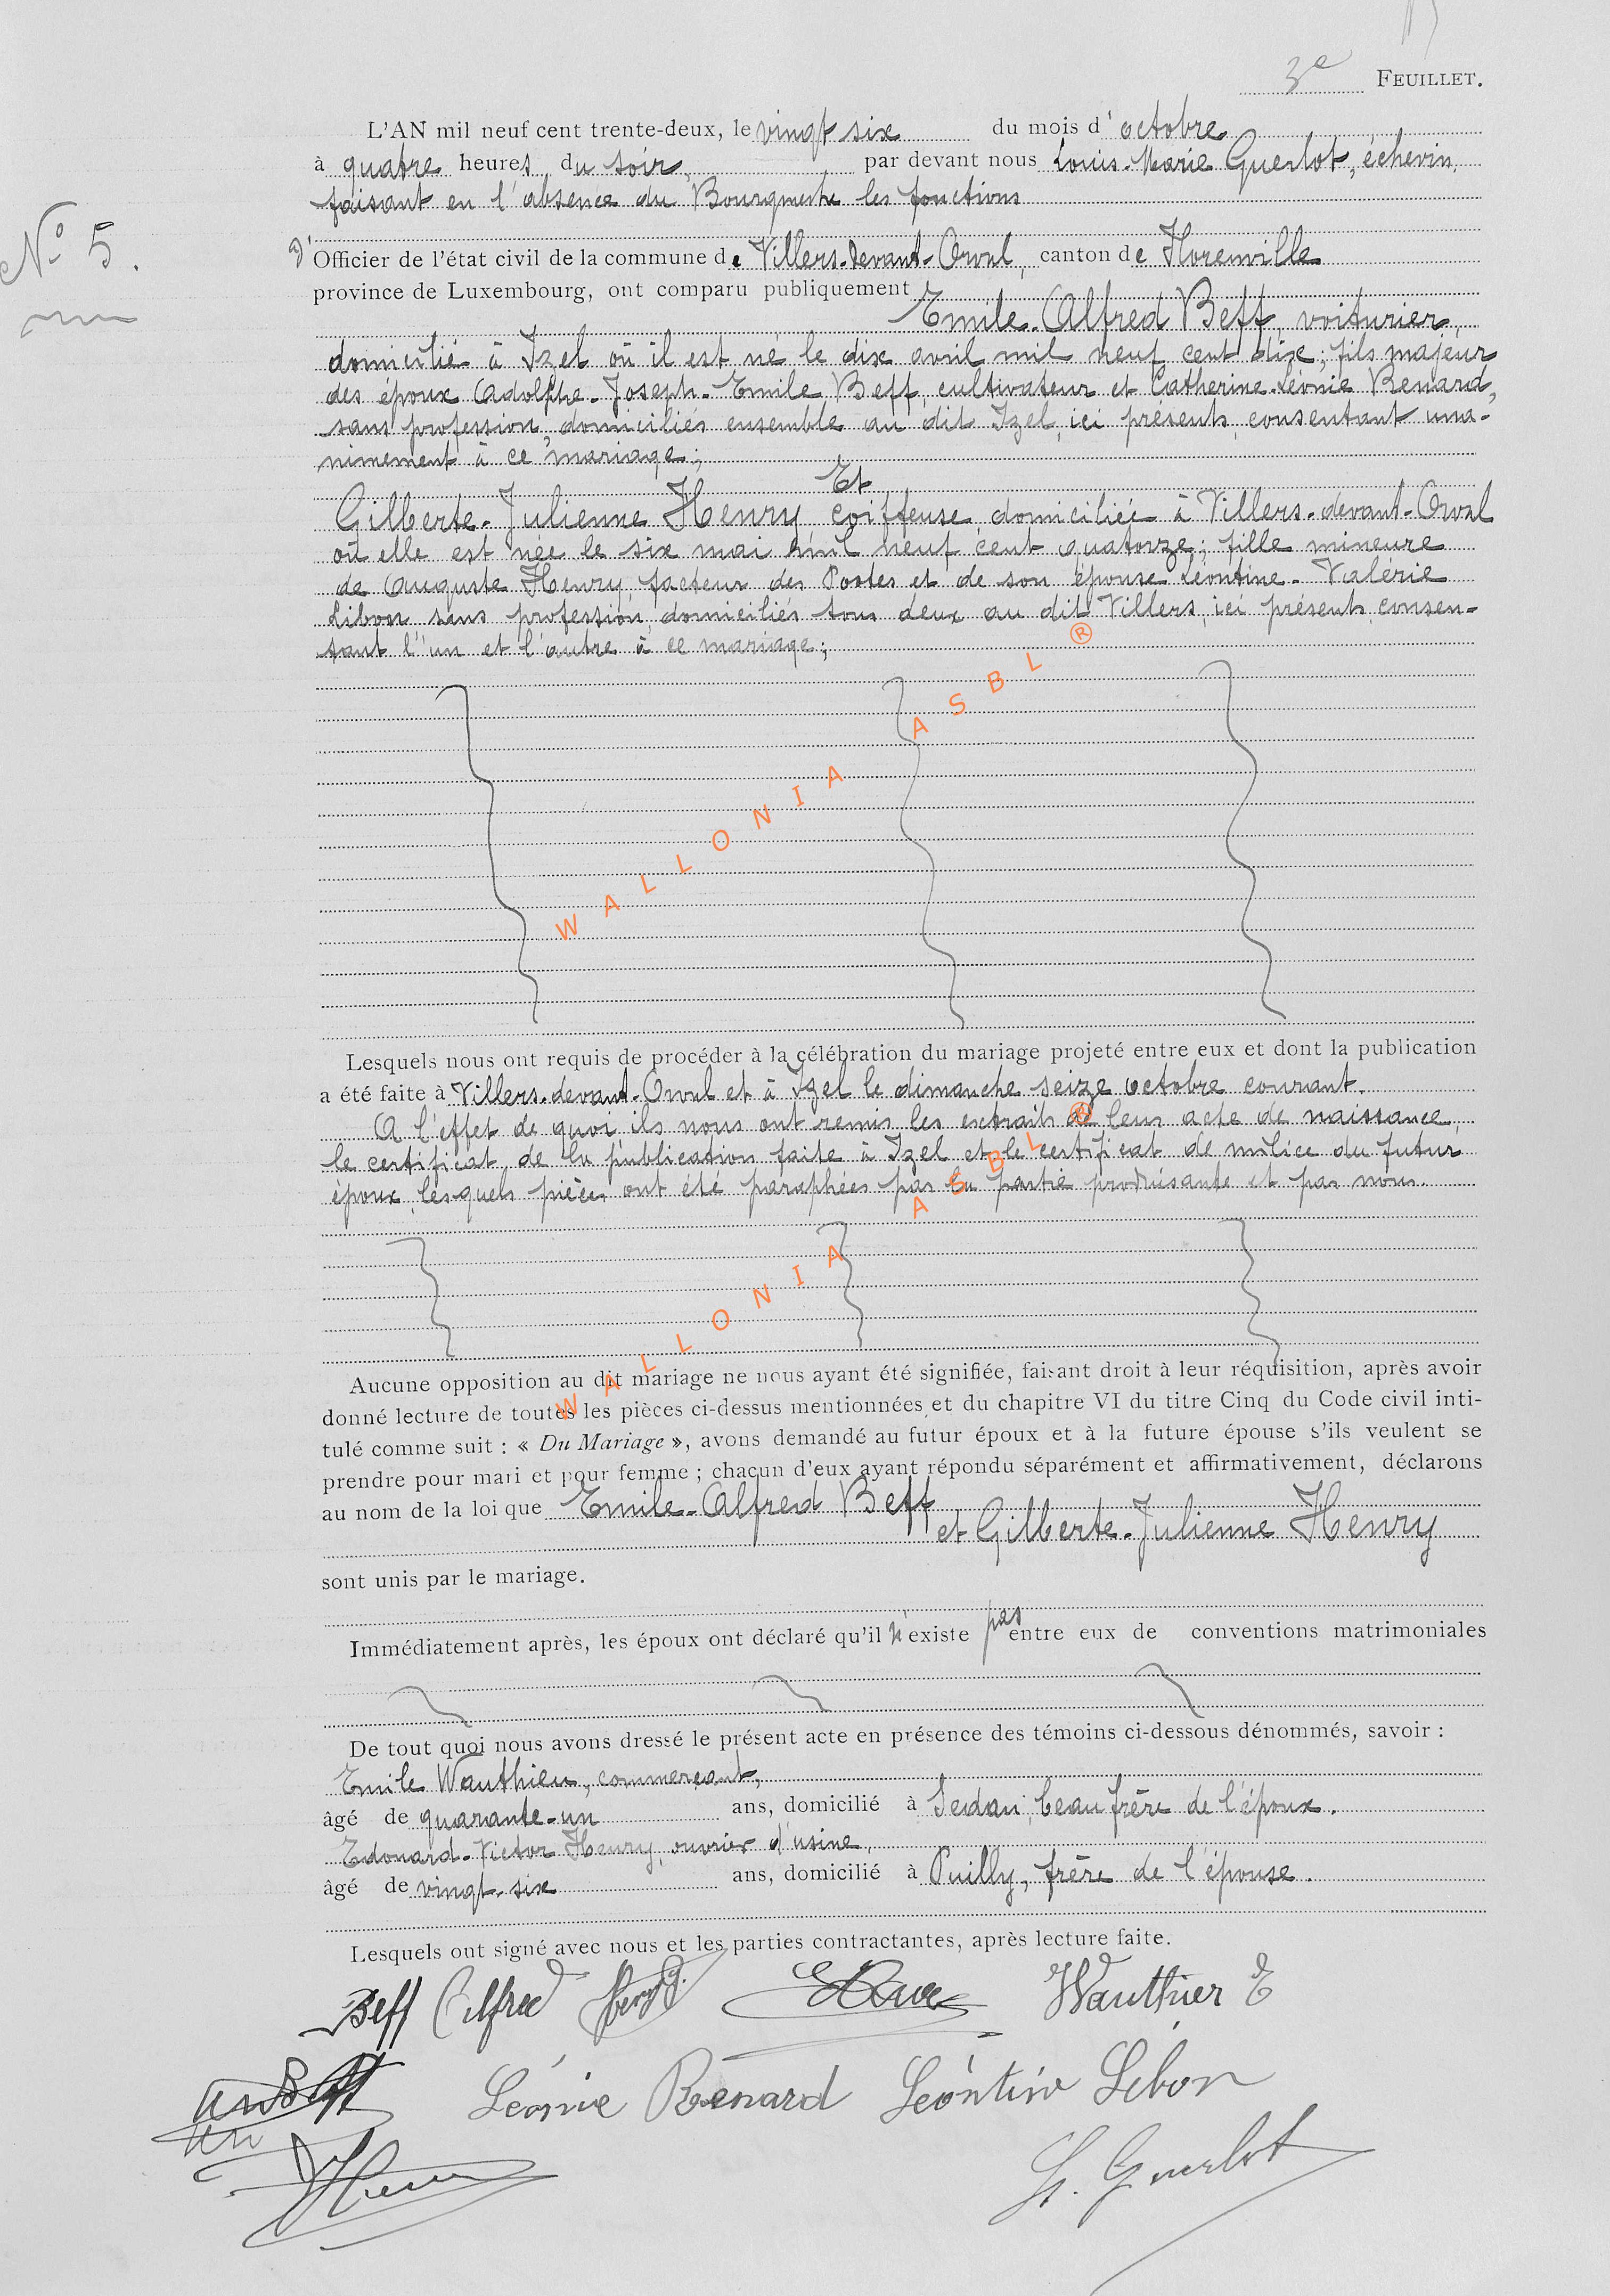 3e FEUILLET.
L'AN mil neuf cent trente-deux, le vingt six du mois d'octobre
à quatre heures du soir, par devant nous Louis-Marie Guerlot, échevin,
faisant en l'absence du Bourgmestre les fonctions
N° 5.
d'Officier de l'état civil de la commune de Villers-devant-Orval, canton de Florenville
province de Luxembourg, ont comparu publiquement
Emile-Alfred Beff, voiturier,
domicilié à Izel où il est né le dix avril mil neuf cent dix; fils majeur
des époux Adolphe-Joseph-Emile Beff, cultivateur et Catherine-Léonie Renard,
sans profession, domiciliés ensemble au dit Izel, ici présents, consentant una-
nimement à ce mariage;
Et
Gilberte-Julienne Henry coiffeuse, domiciliée à Villers-devant-Orval
où elle est née le six mai mil neuf cent quatorze; fille mineure
de Auguste Henry, facteur des Postes et de son épouse Léontine-Valérie
Libon sans profession, domiciliés tous deux au dit Villers, ici présents, consen-
tant l'un et l'autre à ce mariage;
WALLONIA ASBL ®
Lesquels nous ont requis de procéder à la célébration du mariage projeté entre eux et dont la publication
a été faite à Villers-devant-Orval et à Izel le dimanche seize octobre courant.
A l'effet de quoi ils nous ont remis les extraits de leur acte de naissance,
le certificat de la publication faite à Izel et le certificat de milice du futur
époux, lesquels pièces ont été paraphées par la partie produisante et par nous.
WALLONIA ASBL ®
Aucune opposition au dit mariage ne nous ayant été signifiée, faisant droit à leur réquisition, après avoir
donné lecture de toutes les pièces ci-dessus mentionnées et du chapitre VI du titre Cinq du Code civil inti-
tulé comme suit : « Du Mariage », avons demandé au futur époux et à la future épouse s'ils veulent se
prendre pour mari et pour femme ; chacun d'eux ayant répondu séparément et affirmativement, déclarons
au nom de la loi que Emile-Alfred Beff
et Gilberte-Julienne Henry
sont unis par le mariage.
Immédiatement après, les époux ont déclaré qu'il n'existe pas entre eux de conventions matrimoniales
De tout quoi nous avons dressé le présent acte en présence des témoins ci-dessous dénommés, savoir :
Emile Wauthier, commerçant,
âgé de quarante-un ans, domicilié à Sedan, beau frère de l'époux.
Edouard-Victor Henry, ouvrier d'usine,
âgé de vingt-six ans, domicilié à Puilly, frère de l'épouse.
Lesquels ont signé avec nous et les parties contractantes, après lecture faite.
Beff Alfred Henry g. Wauthier E
Léonie Renard Léontine Libon
L. Guerlot